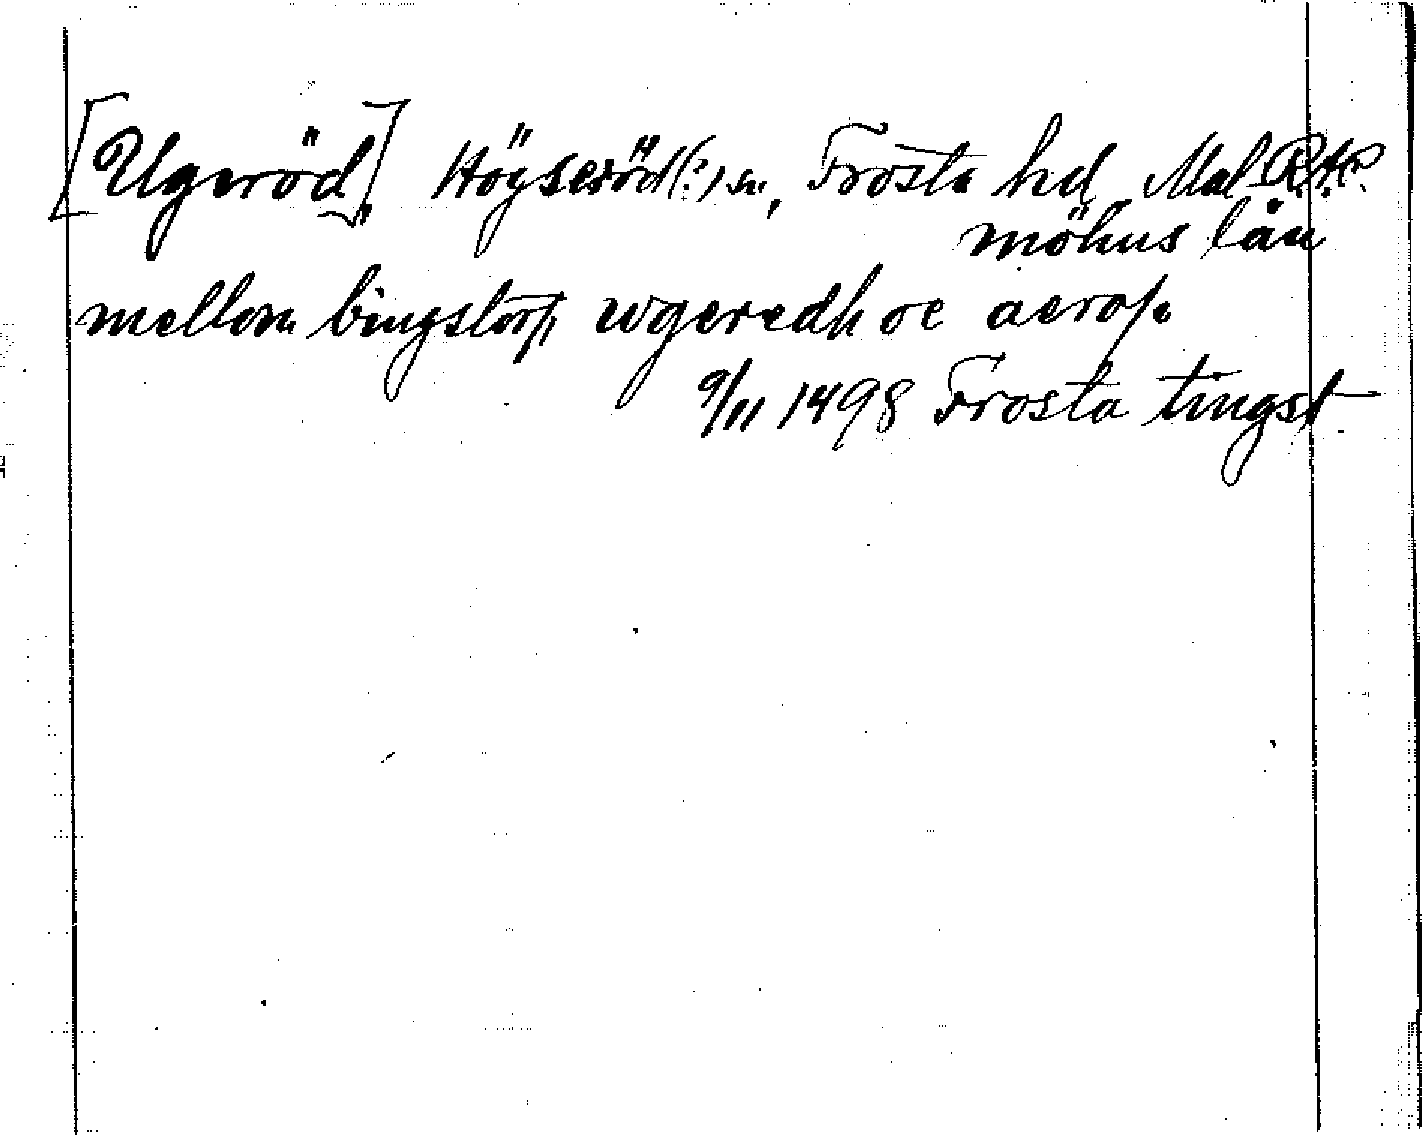 [Ugeröd] Högseröd(?) sn, Frosta hd, Mal-
möhus län
mellom bingstorp wgeredh oc aerop
9/11 1498 Frosta tingst